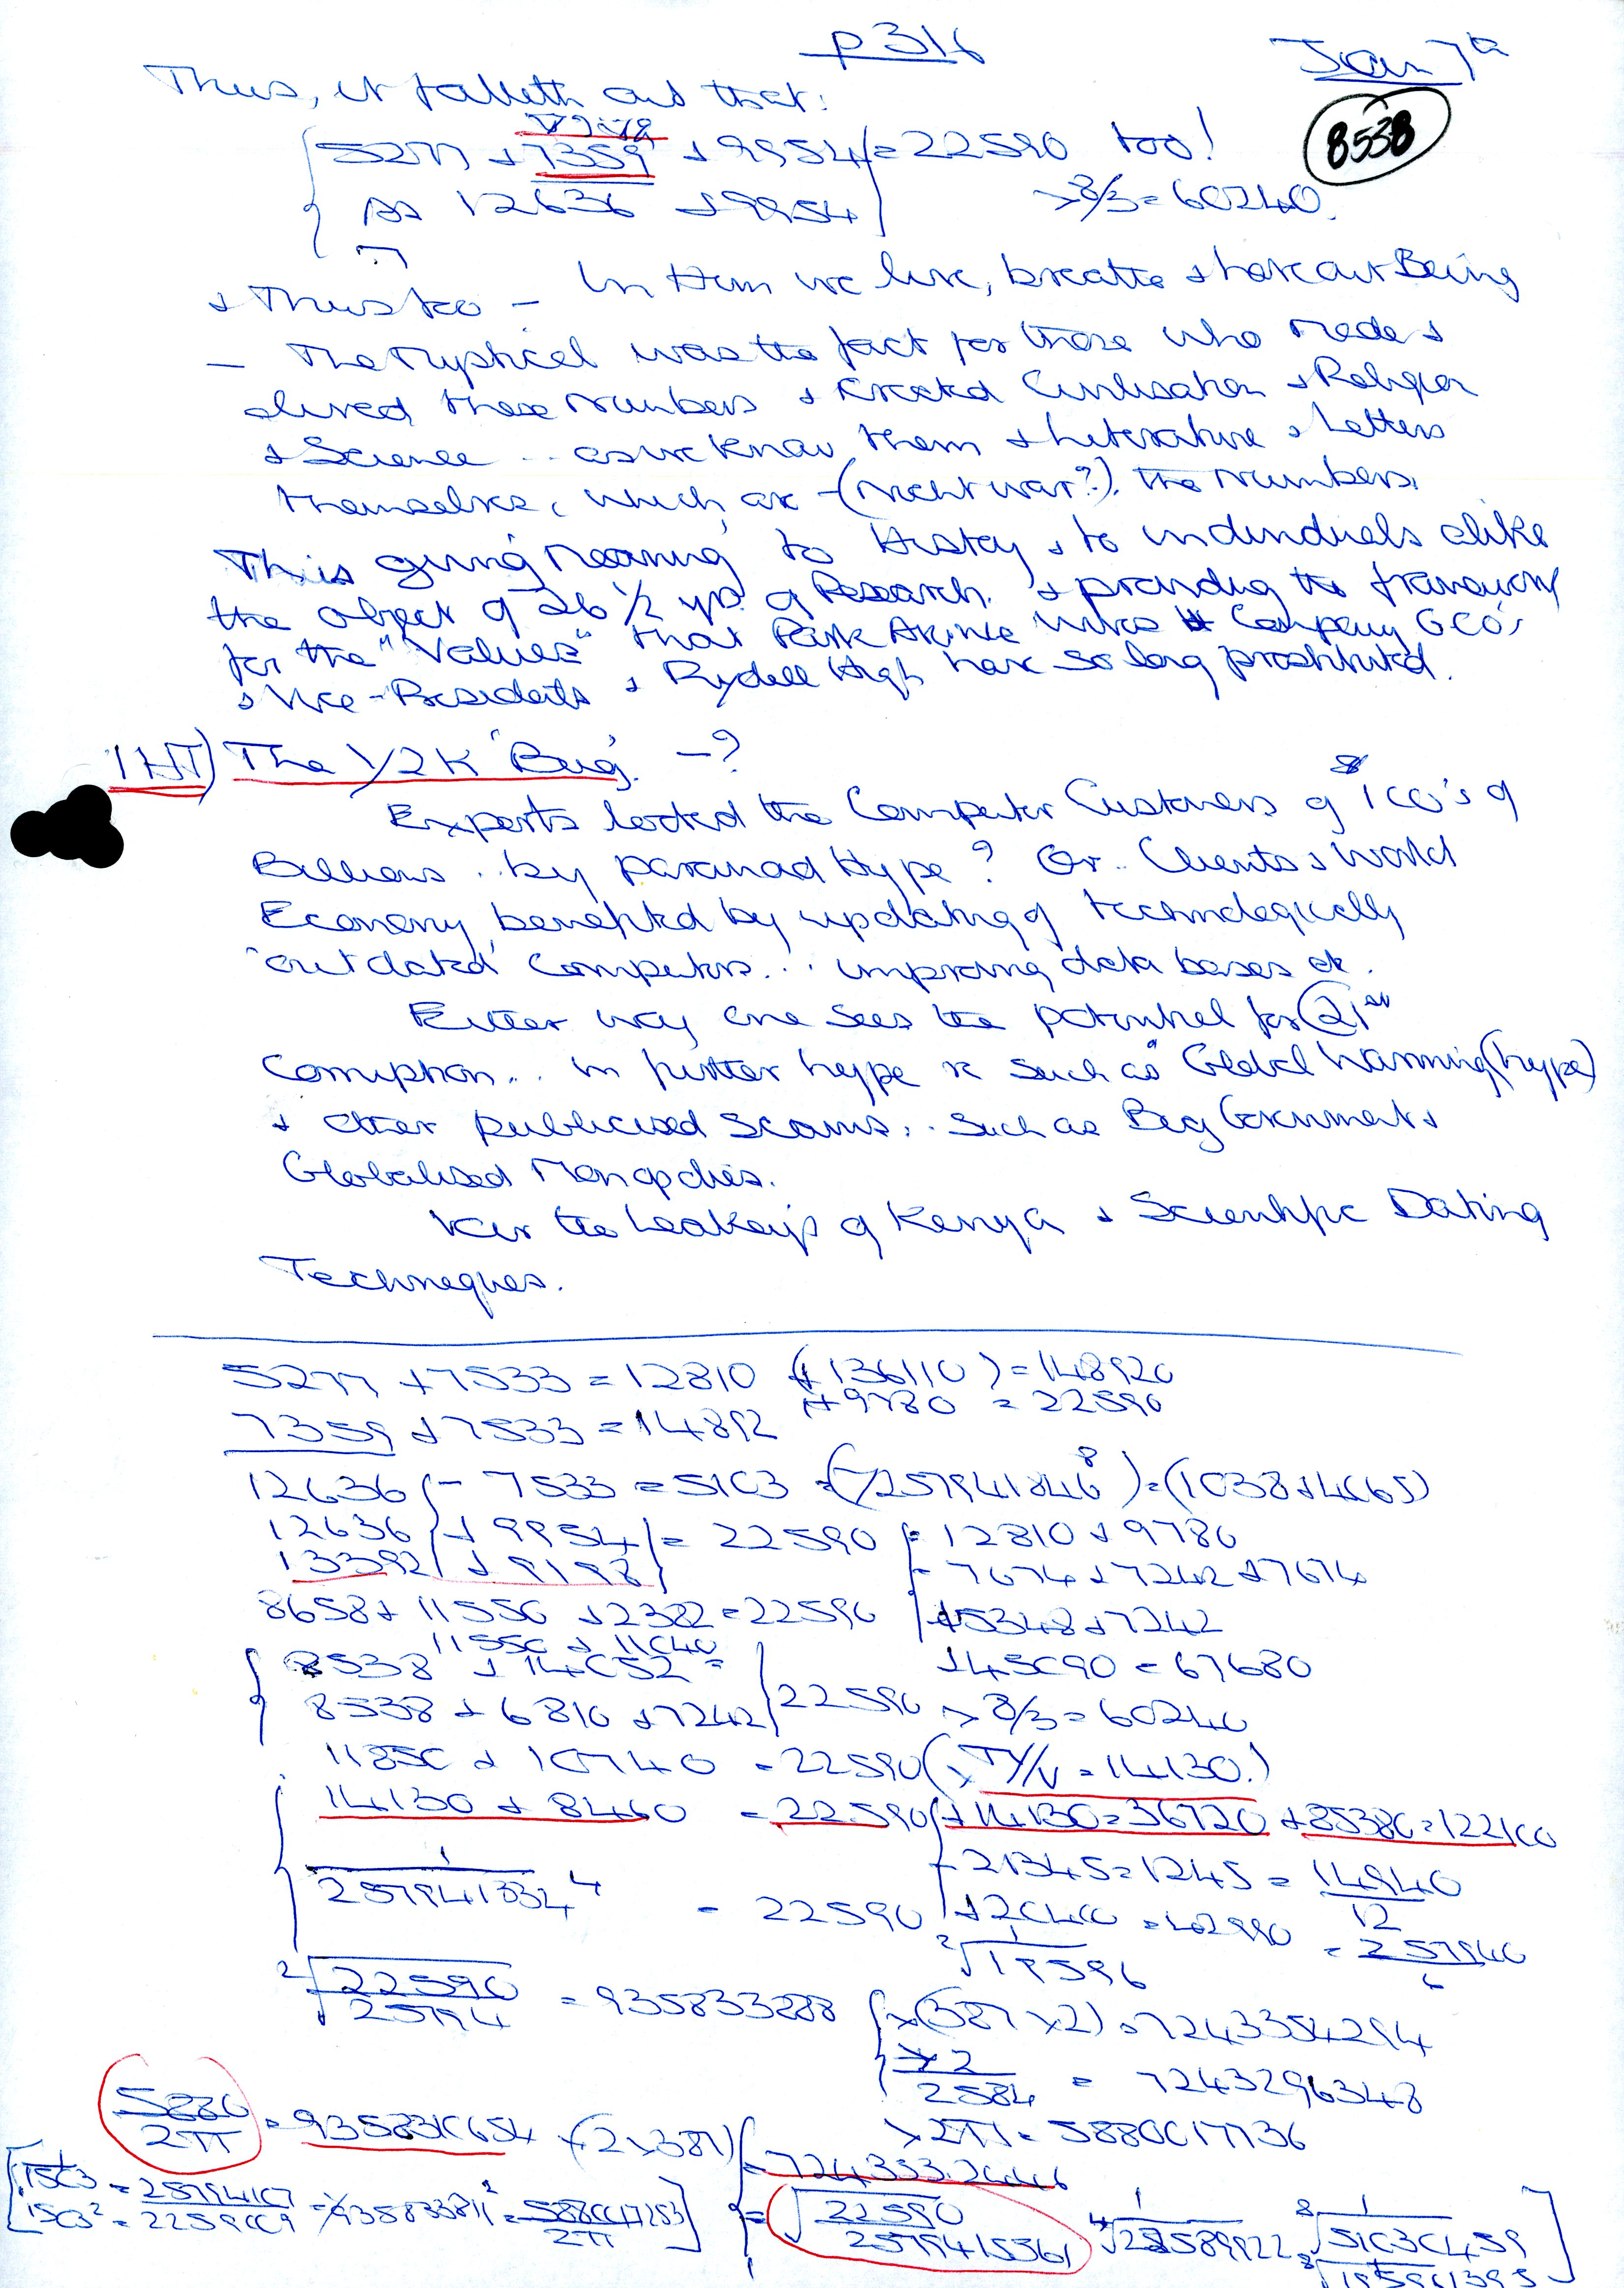 p 316
Jan 7th
8538
Thus, it falleth out that:
5277 + 7359 + 9954 = 22590 too!
as 12636 + 9954 × 8/3 = 60240.
& Thus too - In Him we live, breathe & have our Being
- The Mystical was the fact for those who made &
lived these Numbers & Created Civilisation & Religion
& Science .. as we know them & Literature & Letters
themselves, which are - (nicht war?). the numbers.
This giving meaning to History & to individuals alike
the object of 26 1/2 yrs. of Research. & providing the framework
for the "Values" that Park Avenue Company CEO's
& Vice-Presidents & Rydell High have so long prostituted.
IHT) The Y2K 'Bug'. -?
Experts looted the Computer Customers of 100's of
Billions .. by paranoid Hype? Or.. Clients & World
Economy benefited by updating of technologically
'outdated' computers... improving data bases etc.
Either way one sees the potential for 21st
Corruption.. in further hype such as Global Warming (hype)
& other publicised Scams.. such as Big Government &
Globalised Monopolies.
the Leakey's of Kenya & Scientific Dating
Techniques.
5277 + 7533 = 12810 (+136110) = 148920
+9780 = 22590
7359 + 7533 = 14892
12636 - 7533 = 5103 = (1/257941846⁸) = (1038+4065)
12636 + 9954 = 22590 = 12810 + 9780
13392 + 9198 = 7674 + 7242 + 7674
8658 + 11550 + 2382 = 22590 = 15348 + 7242
11550 + 11040 =
8538 + 14052 = + 45090 = 67680
8538 + 6810 + 7242 22590 × 8/3 = 60240
11850 + 10740 = 22590 ( = 14130.)
14130 + 8460 = 22590 + 14130 = 36720 + 85380 = 122100
- 21345 = 1245 = 14940/12
1/257941334⁴ = 22590 + 20400 = 42990 = 257940/6
²√1/19596
²√22590/25794 = 935833288 × (387 × 2) = 7243354294
× 2/2584 = 7243296348
5880/2π = 9358310654 × (2×387) × 2π = 5880017736
= 724333.2446
1503 = 25794107
1503² = 2259009 = 1/935833811² = 5880047253/2π
= √22590/2579415361 ⁴√1/22589922 ⁸√1/51030459